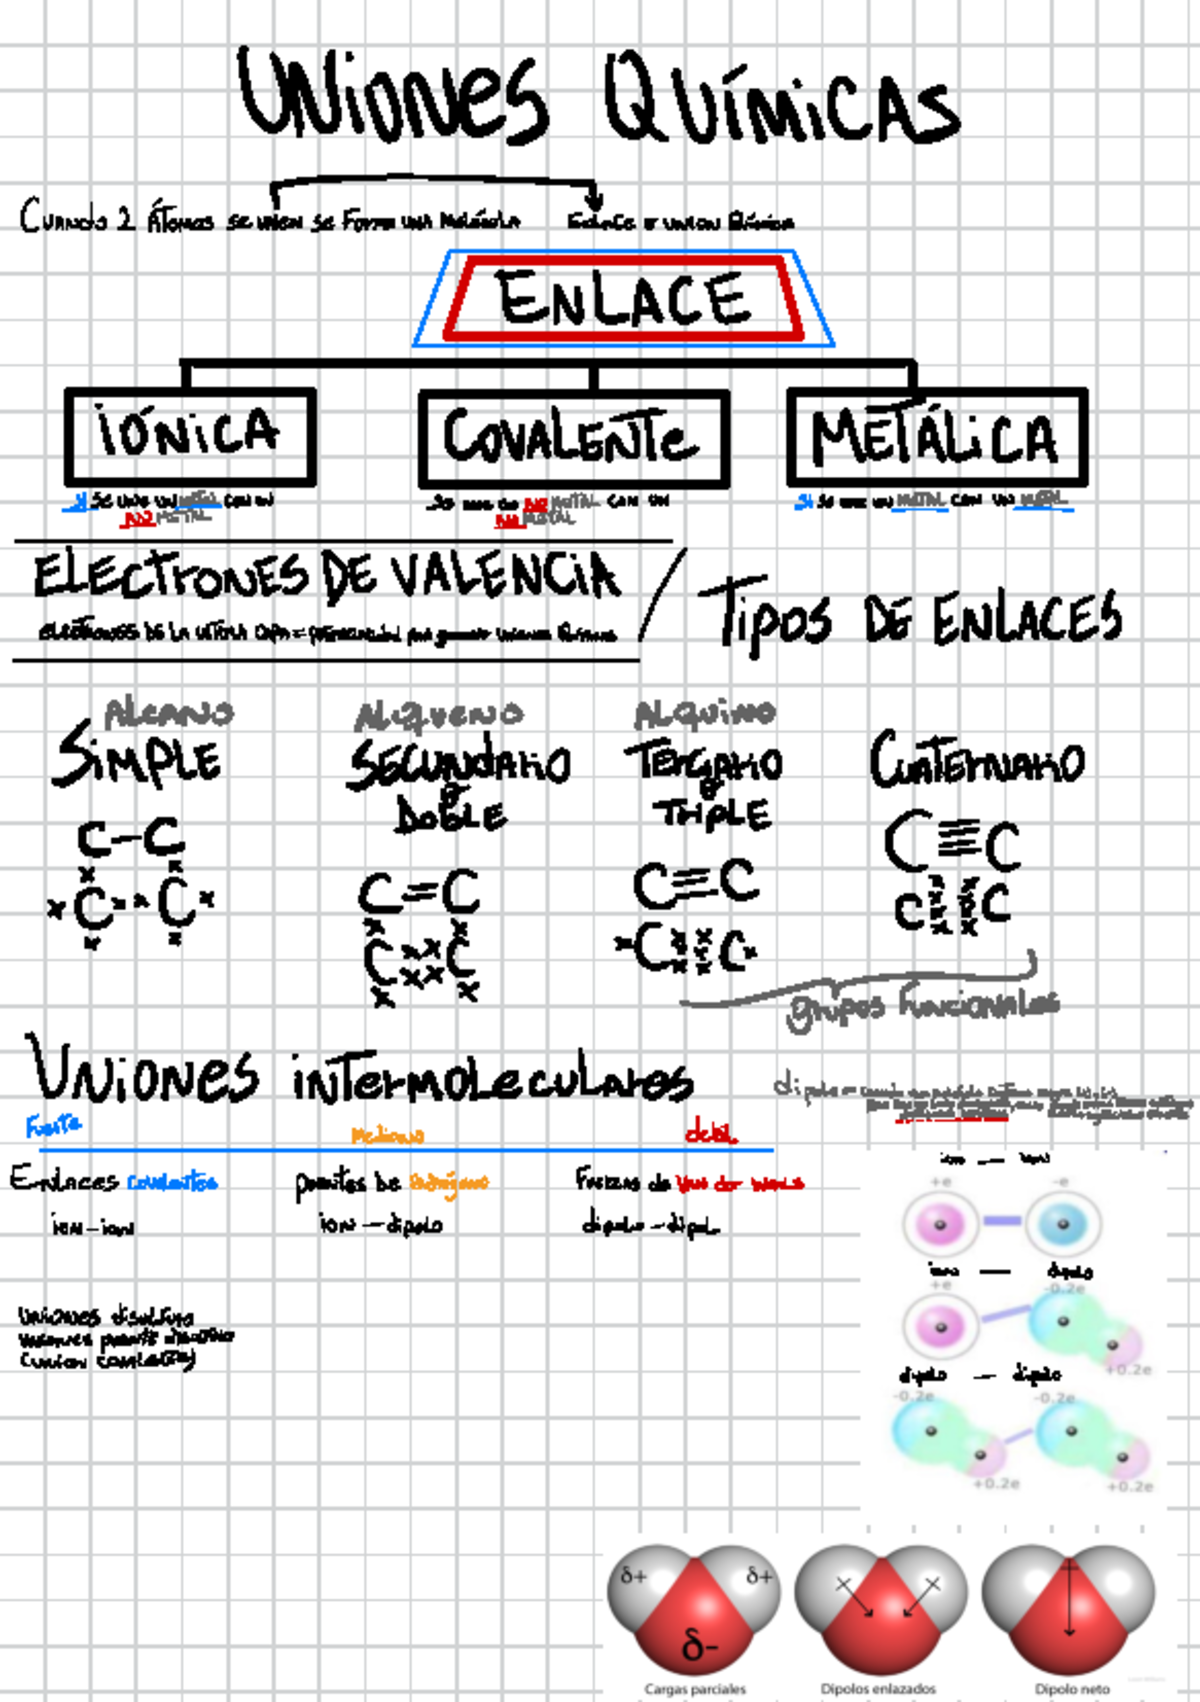 UNiONES QUÍMiCAS
Cuando 2 Átomos se unen se Forma una Molécula Enlace o union Química
ENLACE
iÓNiCA COVALENTE METÁLiCA
Si se une un METAL con un NO METAL
Se une un NO METAL con un NO METAL
Si se une un METAL con un METAL
ELECTRONES DE VALENCiA
ELECTRONES DE LA ULTIMA CAPA =
Tipos DE ENLACES
ALCANO ALQUENO ALQUINO
SiMPLE SECUNDARIO o DOBLE TERCIARIO o TRIPLE CUATERNARIO
C-C
C=C
C≡C
C C
x C x x C x
C xx xx C
x C xxx xxx C x
C xxxx xxxx C
grupos Funcionales
UNiONES iNTERMOLECULARES
dipolo =
Fuerte Mediano debil
Enlaces covalentes puentes de hidrógeno Fuerzas de Van der Waals
ion-ion ion-dipolo dipolo-dipol
ion — ion
+e -e
ion — dipolo
+e -0.2e
+0.2e
dipolo — dipolo
-0.2e -0.2e
+0.2e +0.2e
UNiONES disulfuro
uniones puente disulfuro
(union covalente)
δ+ δ+
δ-
Cargas parciales Dipolos enlazados Dipolo neto